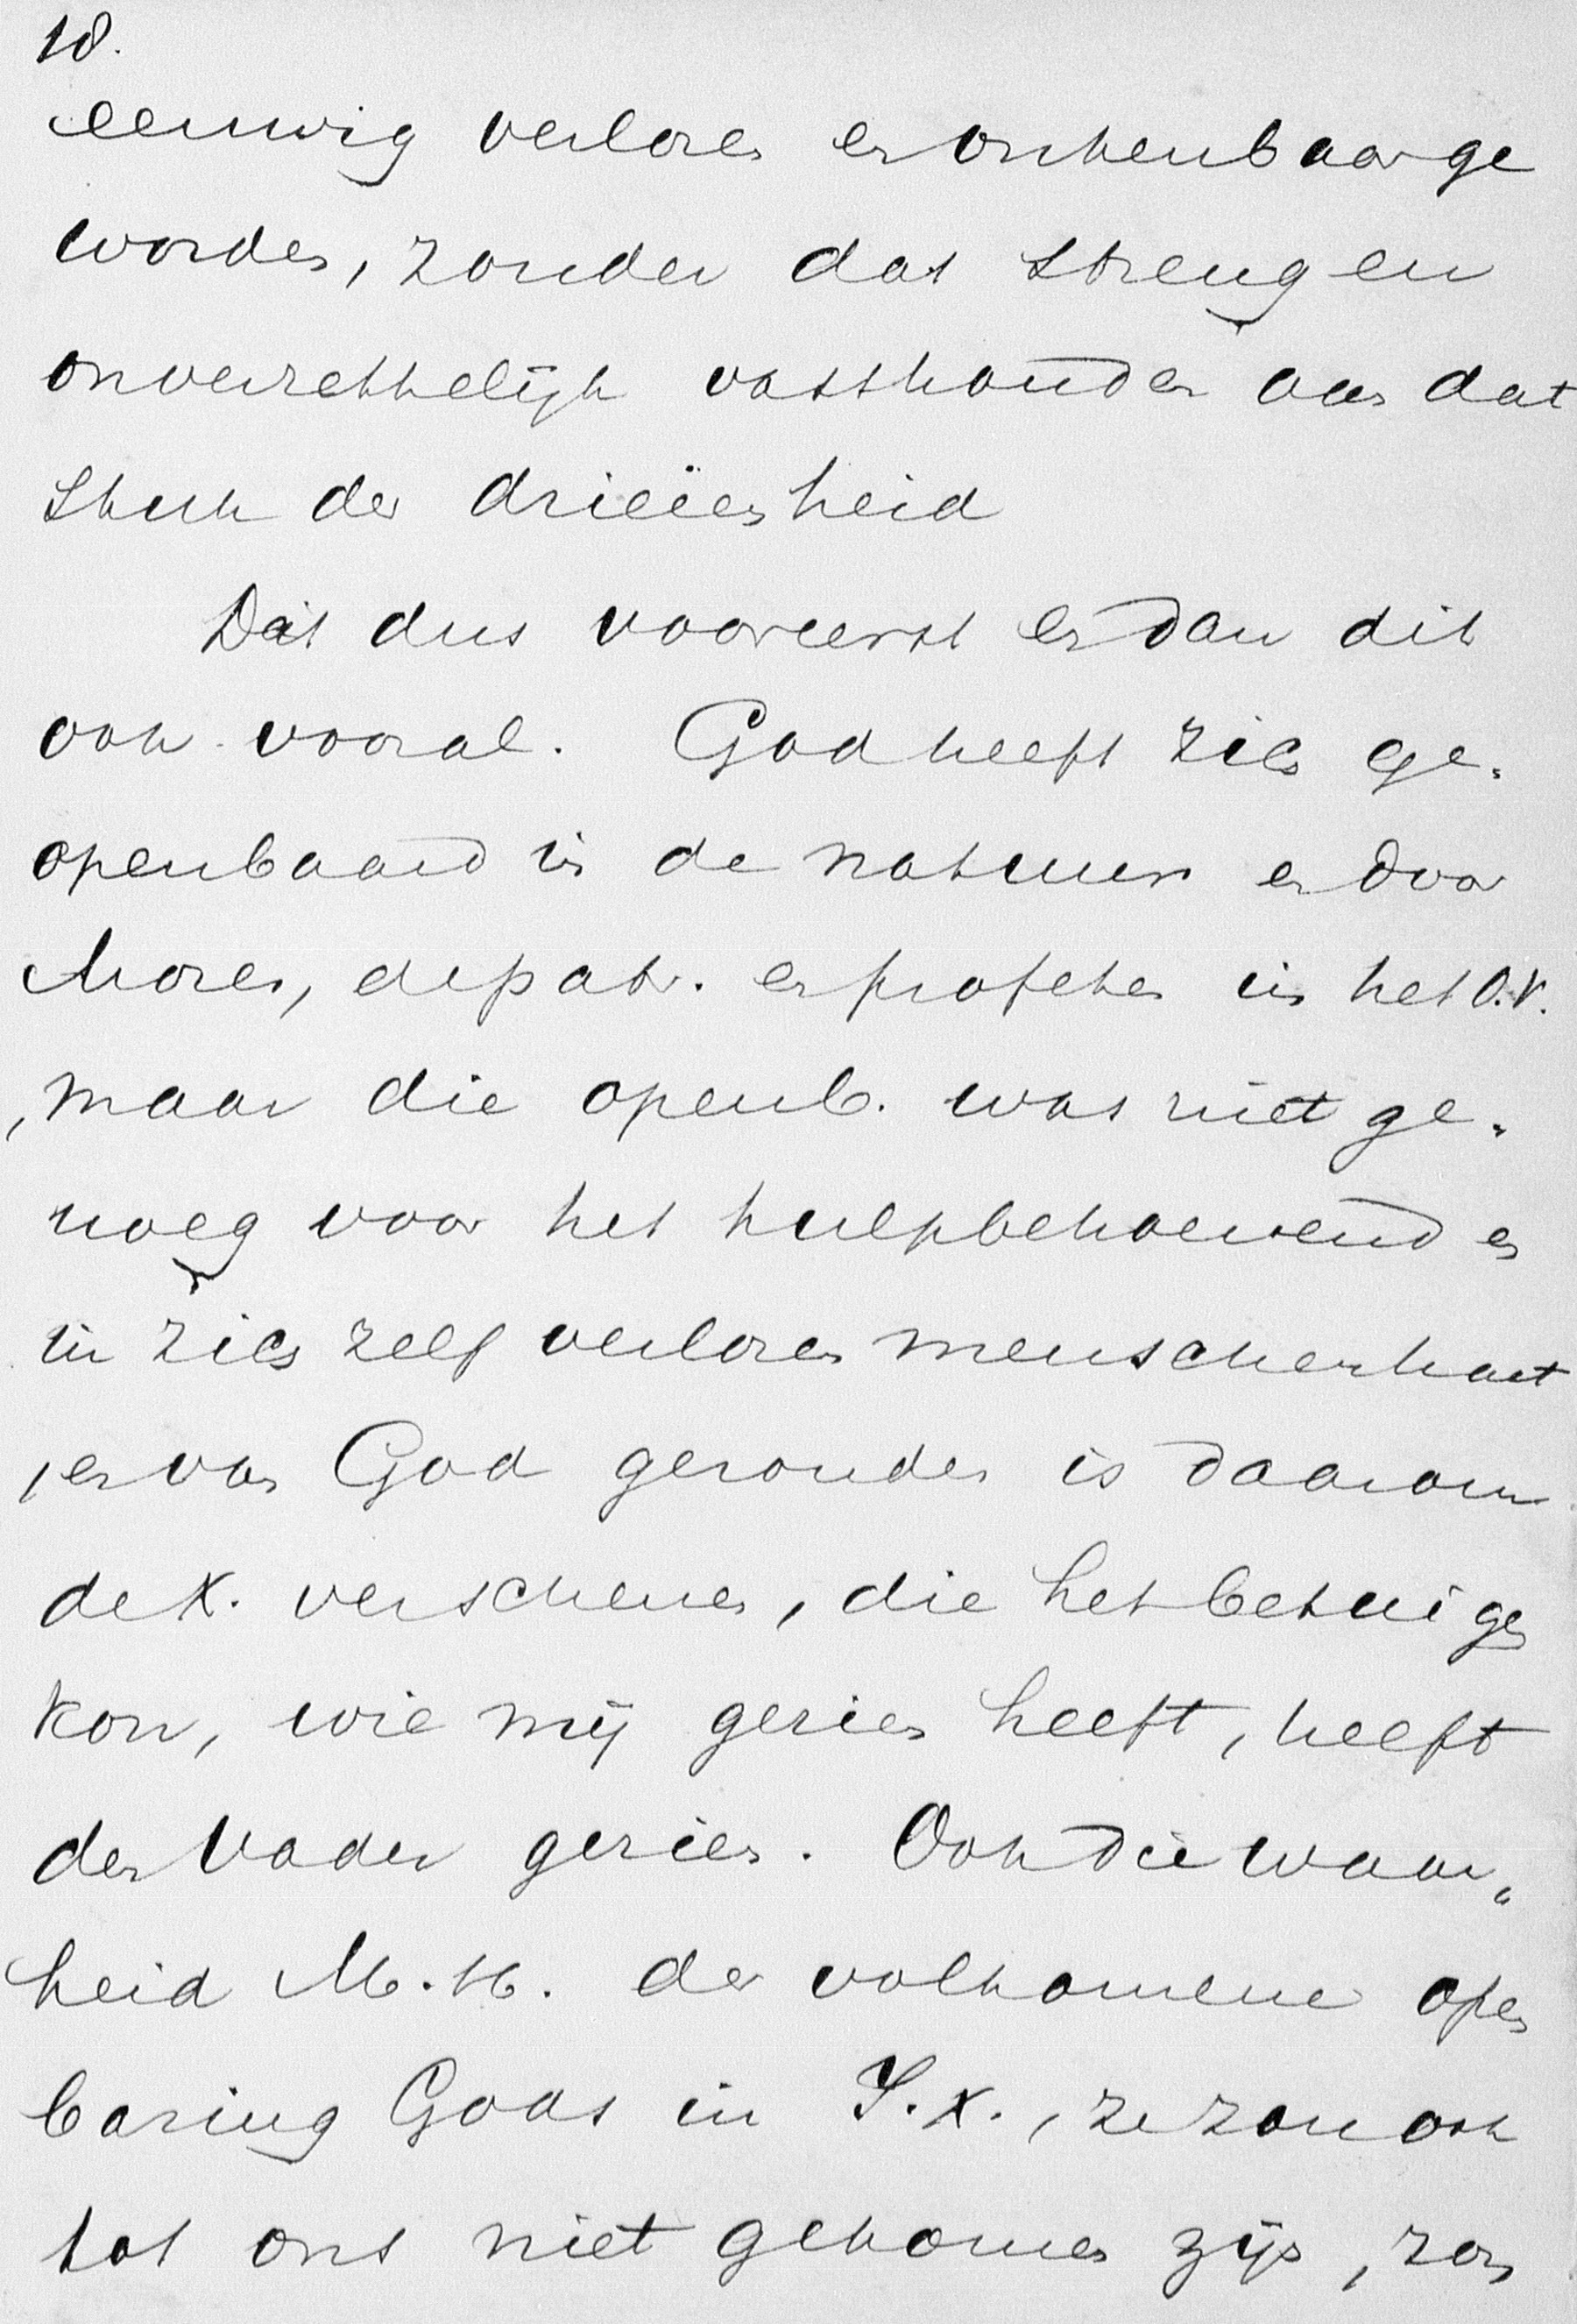 18.
eeuwig verloren en onkenbaar ge
worden, zonder dat streng en
onverzettelijk vasthouden aan dat
stuk der drieëenheid
Dat dus vooreerst en dan dit
ook vooral. God heeft zich ge„
openbaard in de natuur en door
Mozes, de psalm. en profeten in het O.V.
, maar die openb. was niet ge„
noeg voor het hulpbehoevend en
in zich zelf verloren menschenhart
, en van God gezonden is daarom
de X. verschenen, die het betuigen
kon, wie mij gezien heeft, heeft
den Vader gezien. Ook die waar„
heid M.H. der volkomene open
baring Gods in J.X., ze zou ook
tot ons niet gekomen zijn, zon